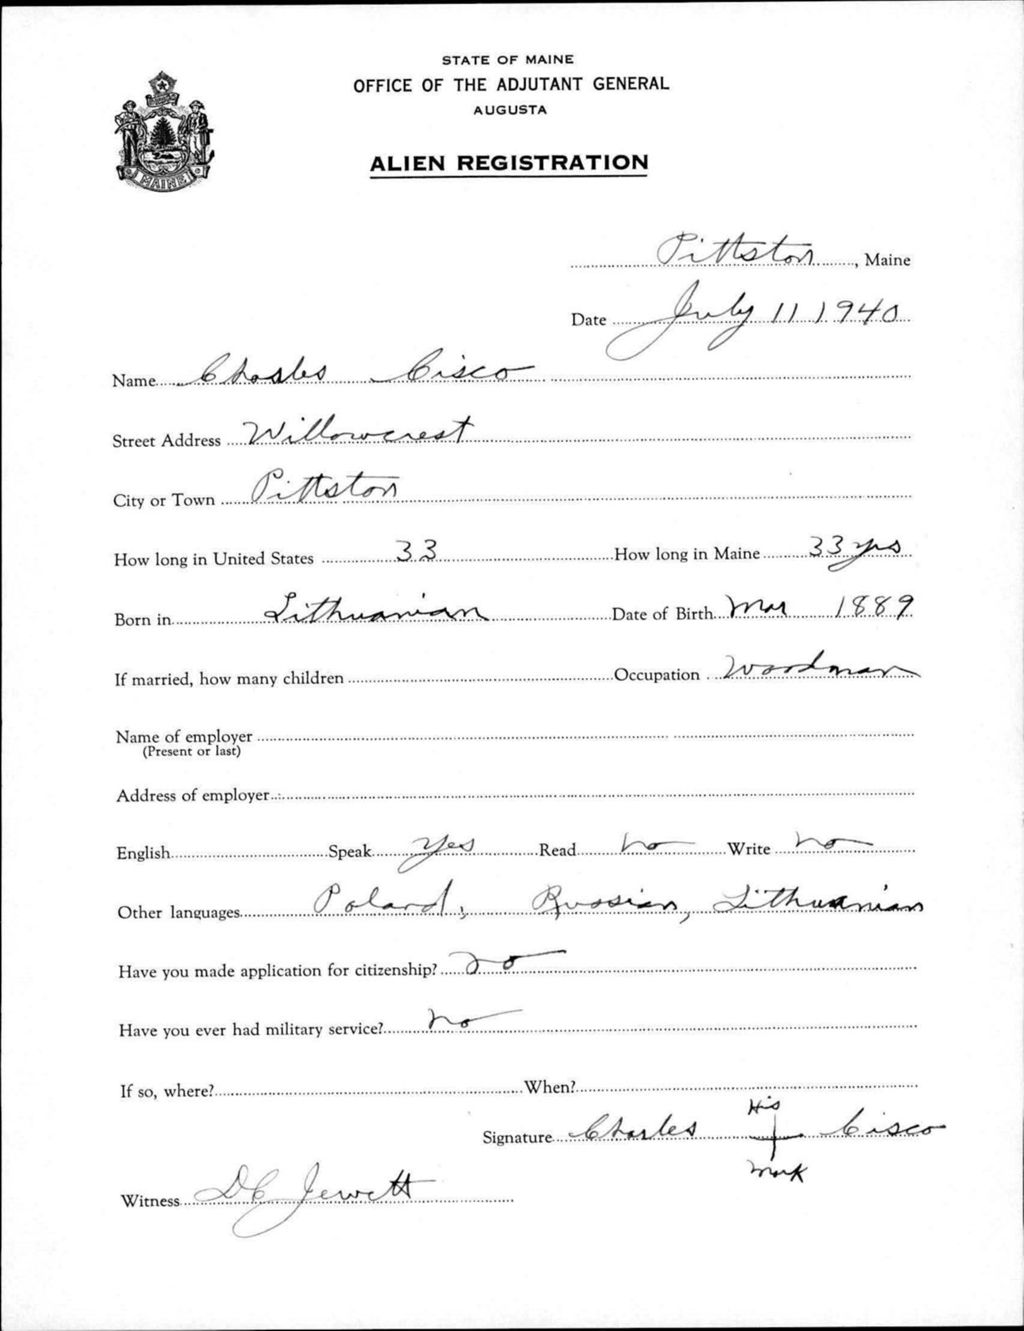 STATE OF MAINE
OFFICE OF THE ADJUTANT GENERAL
AUGUSTA
ALIEN REGISTRATION
MAINE
Pittston, Maine
Date July 11 1940
Name Charles Cisco
Street Address Willowcrest
City or Town Pittston
How long in United States 33 How long in Maine 33 yrs
Born in Lithuanian Date of Birth Mar 1889
If married, how many children Occupation Woodman
Name of employer
(Present or last)
Address of employer
English Speak Yes Read no Write no
Other languages Poland, Russian, Lithuanian
Have you made application for citizenship? no
Have you ever had military service? no
If so, where? When?
His
Signature Charles Cisco
mark
Witness DC Jewett